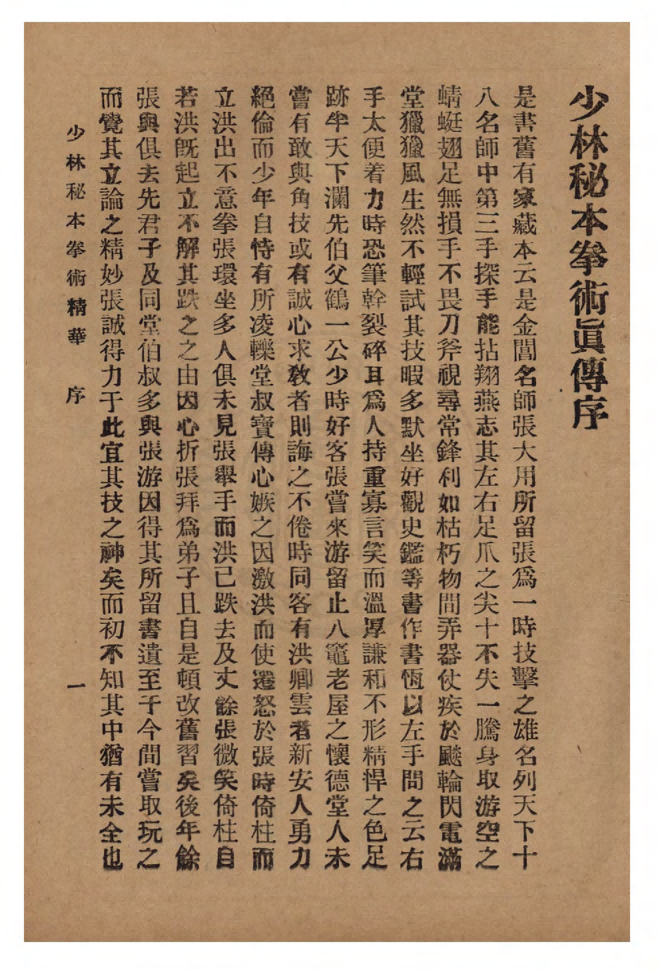 少林秘本拳術眞傳序
是書舊有家藏本云是金閶名師張大用所留張爲一時技擊之雄名列天下十
八名師中第三手探手能拈翔燕志其左右足爪之尖十不失一騰身取游空之
蜻蜓翅足無損手不畏刀斧視尋常鋒利如枯朽物間弄器仗疾於颷輪閃電滿
堂獵獵風生然不輕試其技暇多默坐好觀史鑑等書作書恆以左手問之云右
手太便着力時恐筆幹裂碎耳爲人持重寡言笑而溫厚謙和不形精悍之色足
跡半天下瀾先伯父鶴一公少時好客張嘗來游留止八竈老屋之懷德堂人未
嘗有敢與角技或有誠心求敎者則誨之不倦時同客有洪卿雲者新安人勇力
絕倫而少年自恃有所凌轢堂叔寶傳心嫉之因激洪而使遷怒於張時倚柱而
立洪出不意拳張環坐多人俱未見張舉手而洪已跌去及丈餘張微笑倚柱自
若洪旣起立不解其跌之之由因心折張拜爲弟子且自是頓改舊習矣後年餘
張與俱去先君子及同堂伯叔多與張游因得其所留書遺至于今間嘗取玩之
而覺其立論之精妙張誠得力于此宜其技之神矣而初不知其中猶有未全也
少林秘本拳術精華　序
一